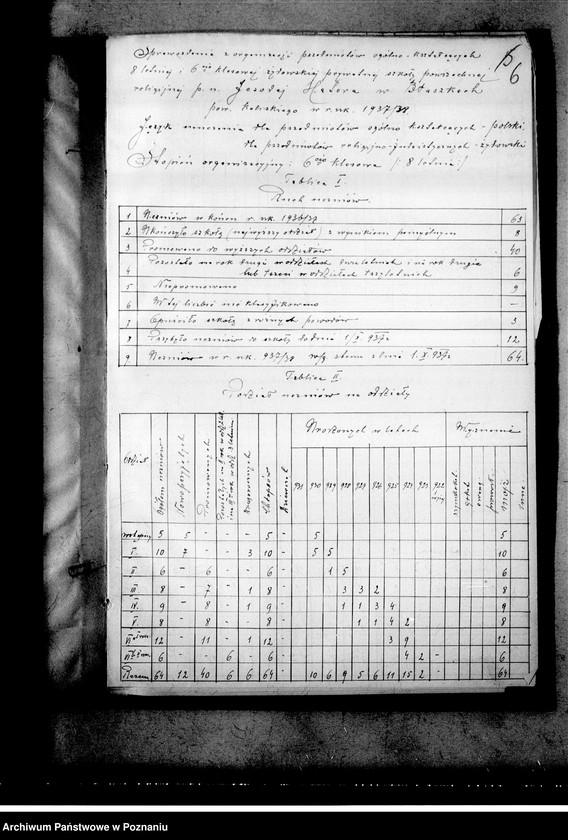 6
Sprawozdanie z organizacji przedmiotów ogólno-kształcących
8 letniej i 6cio klasowej żydowskiej prywatnej szkoły powszechnej
religijnej p.n. Jesodej Hatora w Błaszkach
pow. kaliskiego w r. szk. 1937/38
Język nauczania dla przedmiotów ogólno kształcących - polski
dla przedmiotów religijno-judaistycznych - żydowski
Stopień organizacyjny: 6cio klasowa /: 8 letnia :/
Tablica I.
Ruch uczniów
1 Uczniów w końcu r. szk. 1936/37 63
2 Ukończyło szkołę (najwyższy oddział) z wynikiem pomyślnym 8
3 Promowano do wyższych oddziałów 40
4 Pozostało na rok drugi w oddziałach dwuletnich i na rok drugi
lub trzeci w oddziałach trzyletnich 6
5 Niepromowano 9
6 W tej liczbie nie klasyfikowano -
7 Opuściło szkołę z różnych powodów 3
8 Przybyło uczniów do szkoły do dnia 1/X 937r 12
9 Uczniów w r. szk. 937/38 wg stanu z dnia 1.X.937r 64
Tablica II.
Podział uczniów na oddziały
Oddział Ogółem uczniów Nowoprzyjętych Promowanych Drugorocznych Chłopców Dziewcząt Urodzonych w latach Wyznanie
931 930 929 928 927 926 925 924 923 922 rzymskokat. grekokat. ewang. prawosł. mojż. inne
wstępny 5 5 - - - 5 - 5 5
I. 10 7 - - 3 10 - 5 5 10
II 6 - 6 - - 6 - 1 5 6
III 8 - 7 - 1 8 - 3 3 2 8
IV. 9 - 8 - 1 9 - 1 1 3 4 9
V. 8 - 8 - - 8 - 1 1 4 2 8
VI 12 - 11 - 1 12 - 3 9 12
VI 6 - - 6 - 6 - 4 2 - 6
Razem 64 12 40 6 6 64 - 10 6 9 5 6 11 15 2 - 64
Archiwum Państwowe w Poznaniu